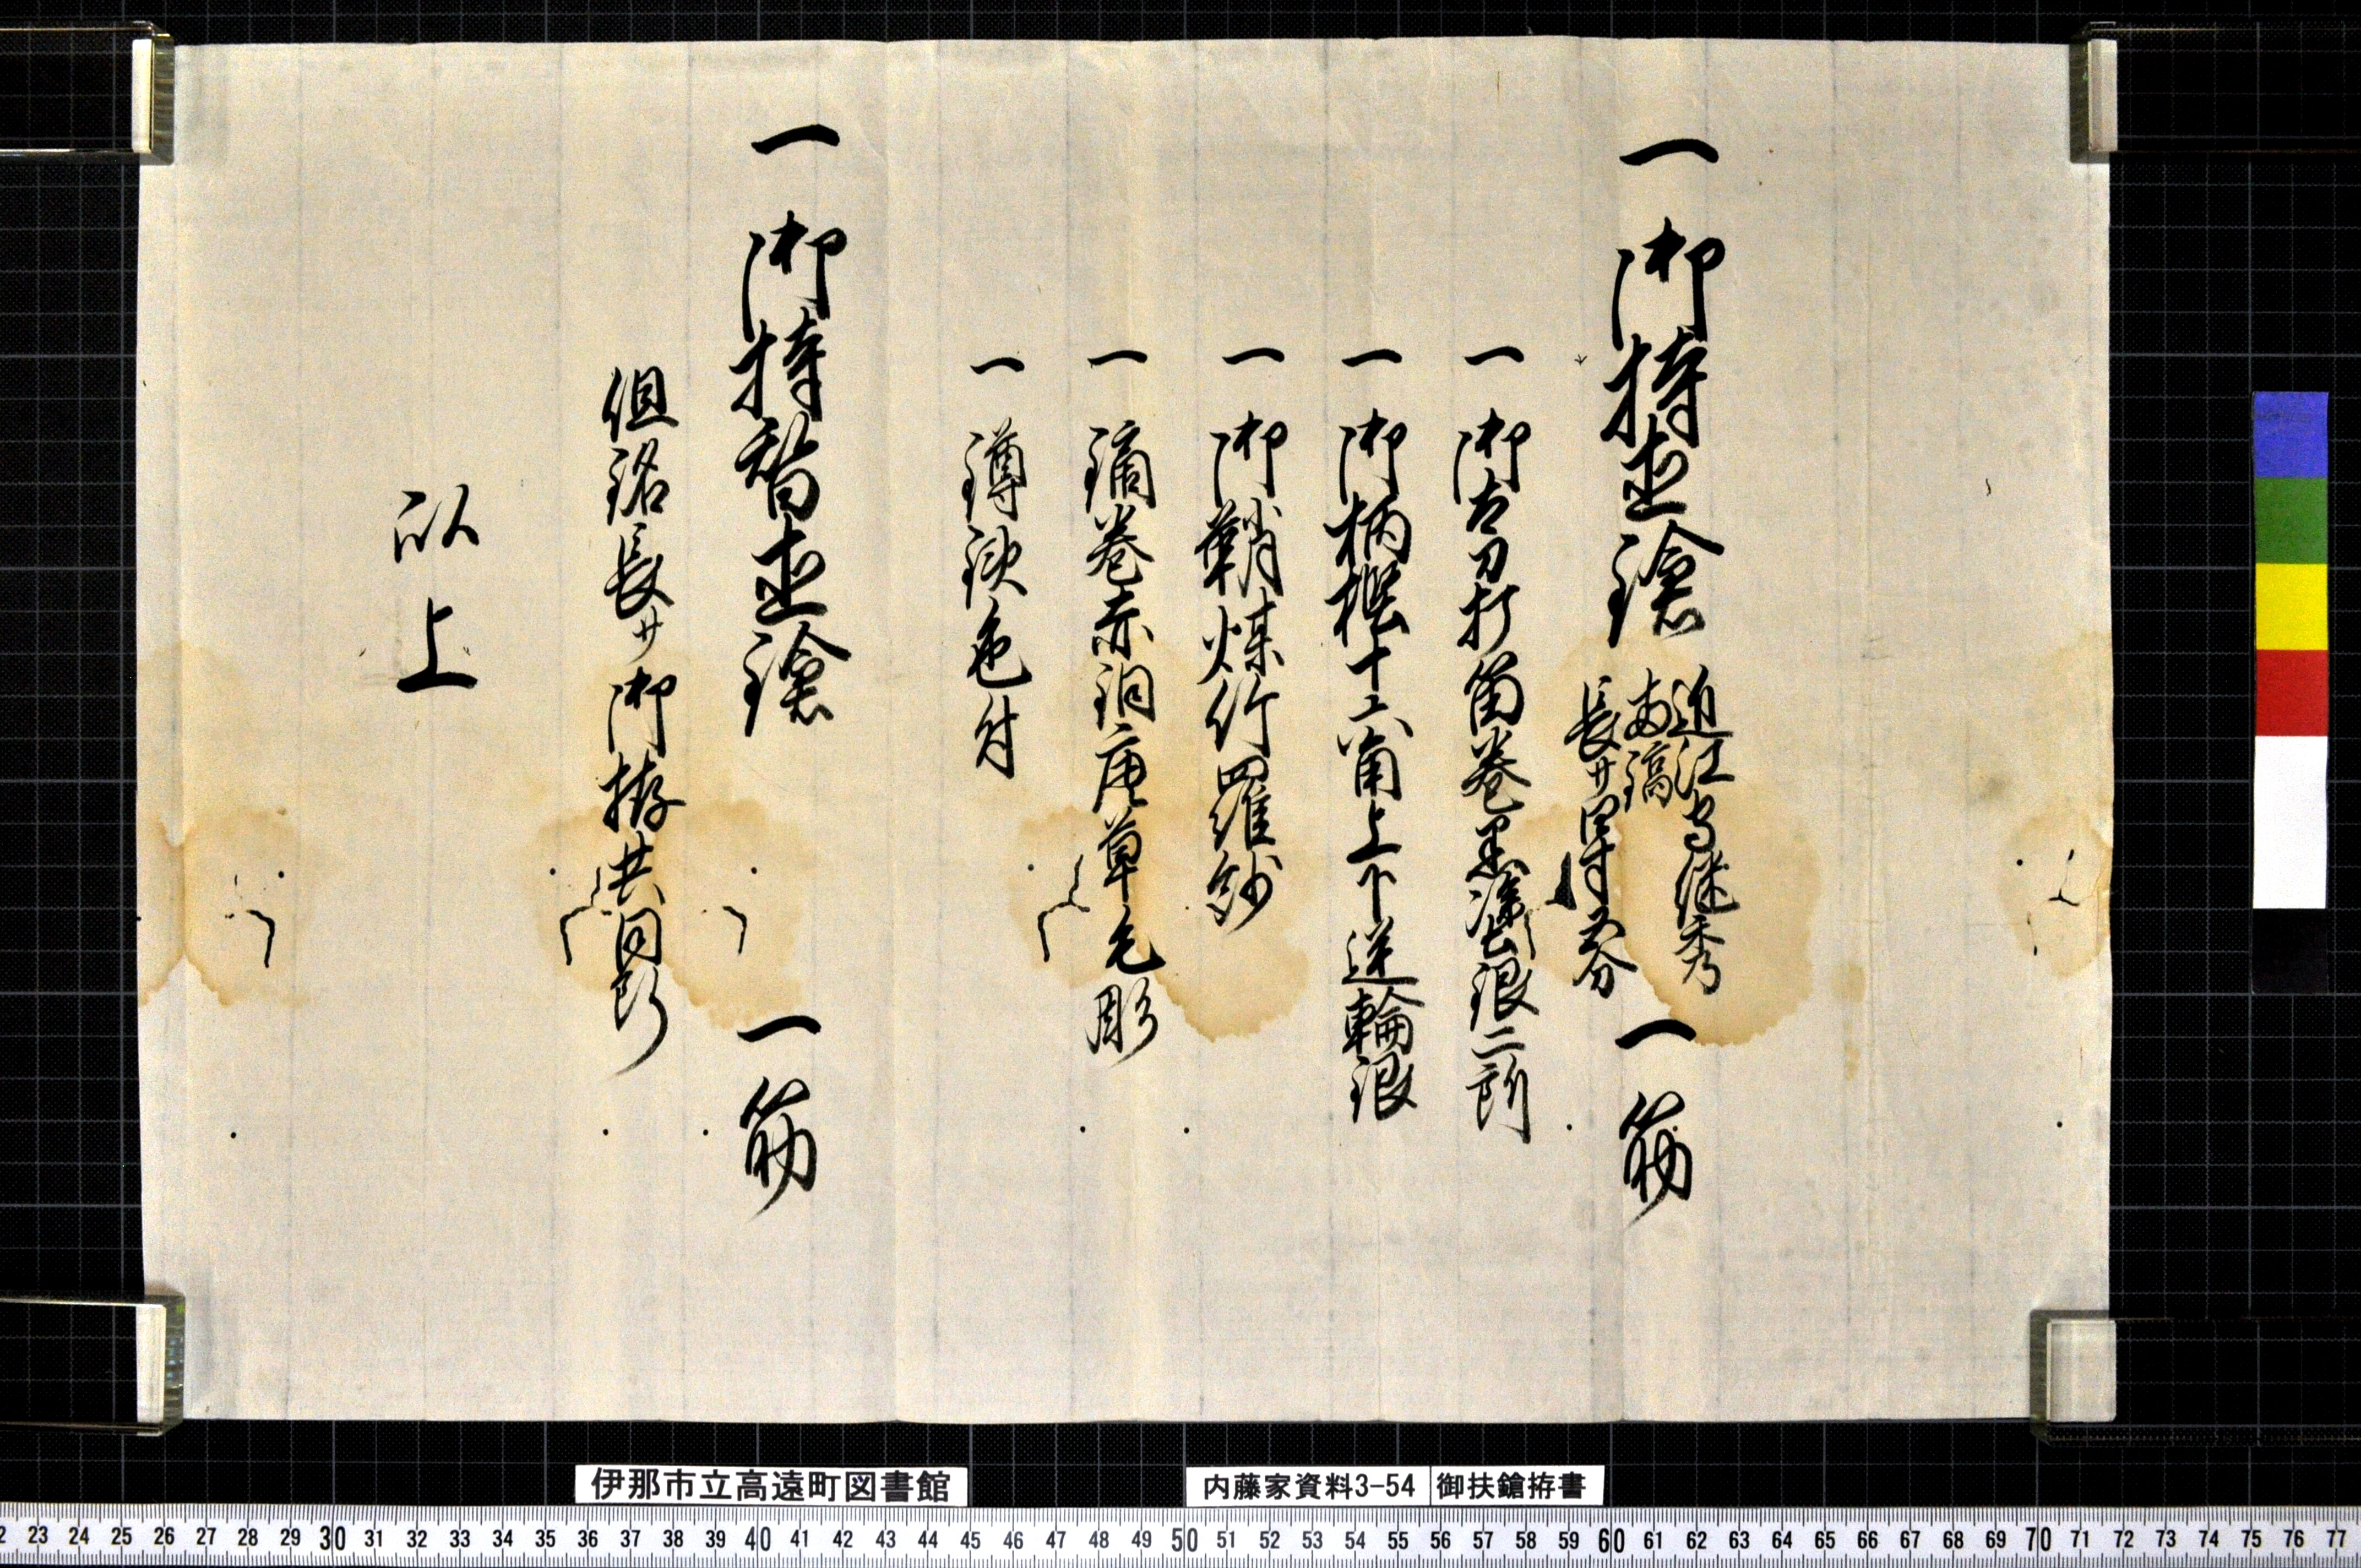 一 御持直鎗 一筋
近江守継秀
両鎬
長サ四寸五分
一 御太刀打菖巻黒塗銀二所
一 御柄樫十六角上下逆輪銀
一 御鞘煤竹羅紗
一 鏑巻赤銅唐草毛彫
一 鐏鉄色付
一 御持替直鎗 一筋
但銘長サ御拵共同断
以上
伊那市立高遠町図書館
内藤家資料3-54 御扶鎗拵書
22 23 24 25 26 27 28 29 30 31 32 33 34 35 36 37 38 39 40 41 42 43 44 45 46 47 48 49 50 51 52 53 54 55 56 57 58 59 60 61 62 63 64 65 66 67 68 69 70 71 72 73 74 75 76 77